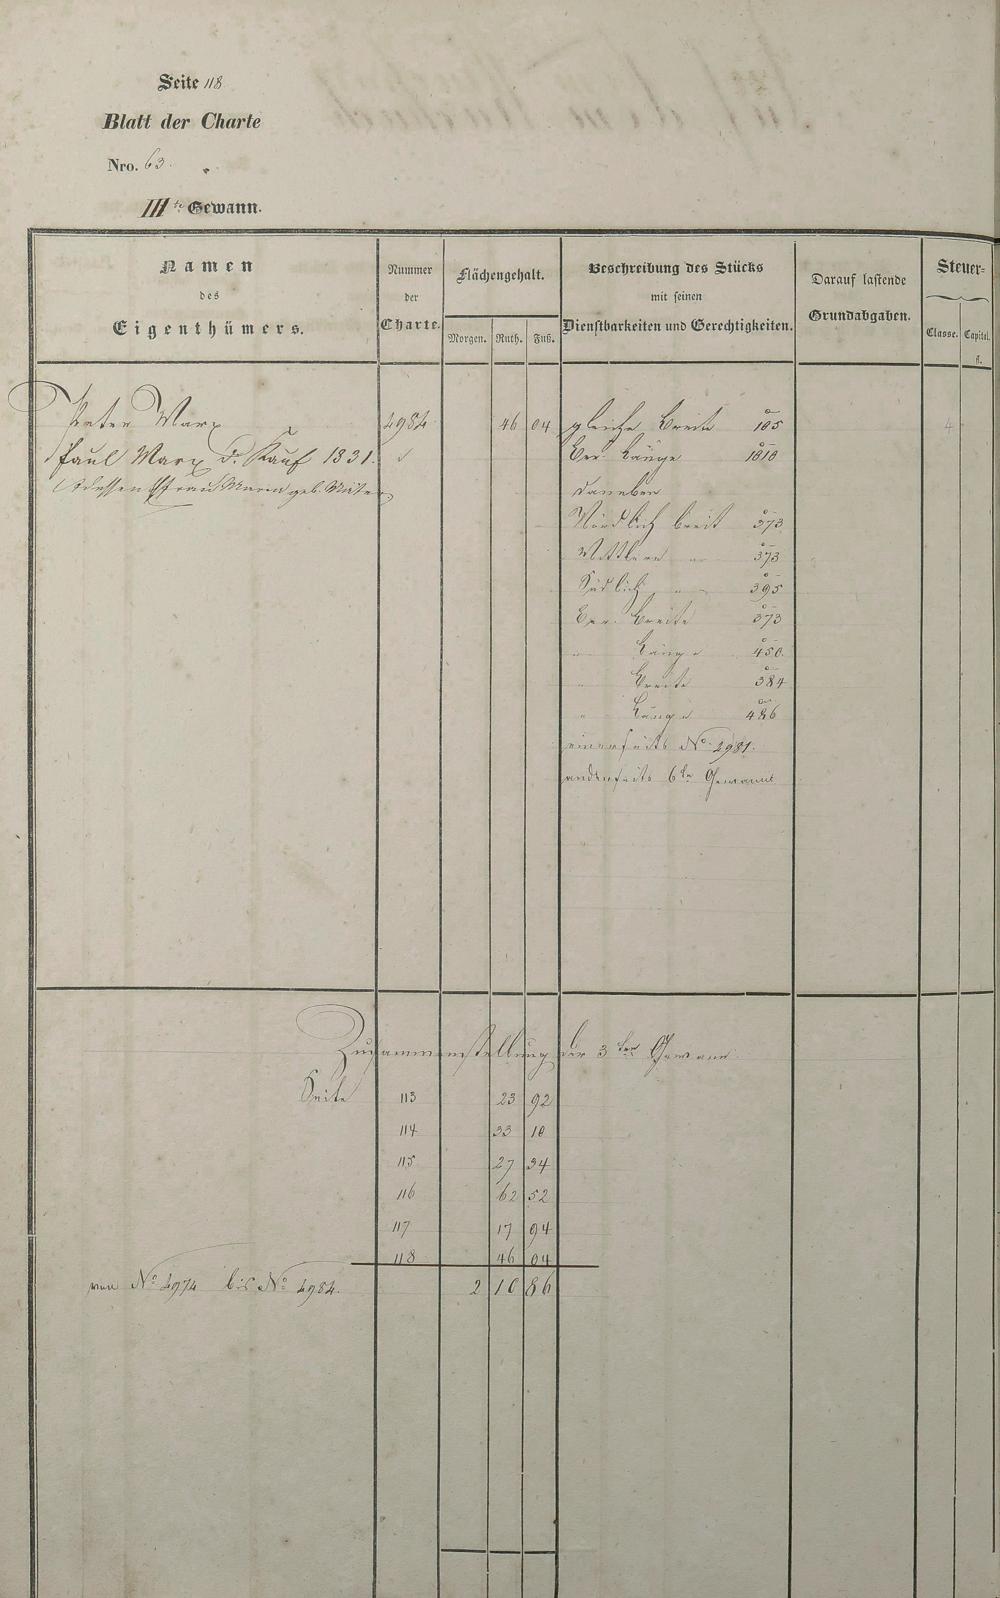 Seite 118
Blatt der Charte
Nro. 63.
III te Gewann.
Namen des Eigenthümers.
Nummer der Charte.
Flächengehalt.
Morgen. Ruth. Fuß.
Beschreibung des Stücks mit seinen Dienstbarkeiten und Gerechtigkeiten.
Darauf lastende Grundabgaben.
Steuer-
Classe. Capital. fl.
Peter Marx 2984 46 04 gleiche Breite 105 4
Paul Marx d. Kauf 1831. Ber. Länge 1010
Dessen Frau Maria geb. daneben
Nördlich breit 373
Mittlere " 373
Südlich " 395
Ber. Breite 373
" Länge 450.
" Breite 384
" Länge 486
einerseits No. 2981.
anderseits 6te Gewann
Zusammenstellung der 3ten Gewann
Seite 113 23 92
114 33 10
115 27 34
116 62 52
117 17 94
118 46 04
von No 2974 bis No 2984. 2 10 86